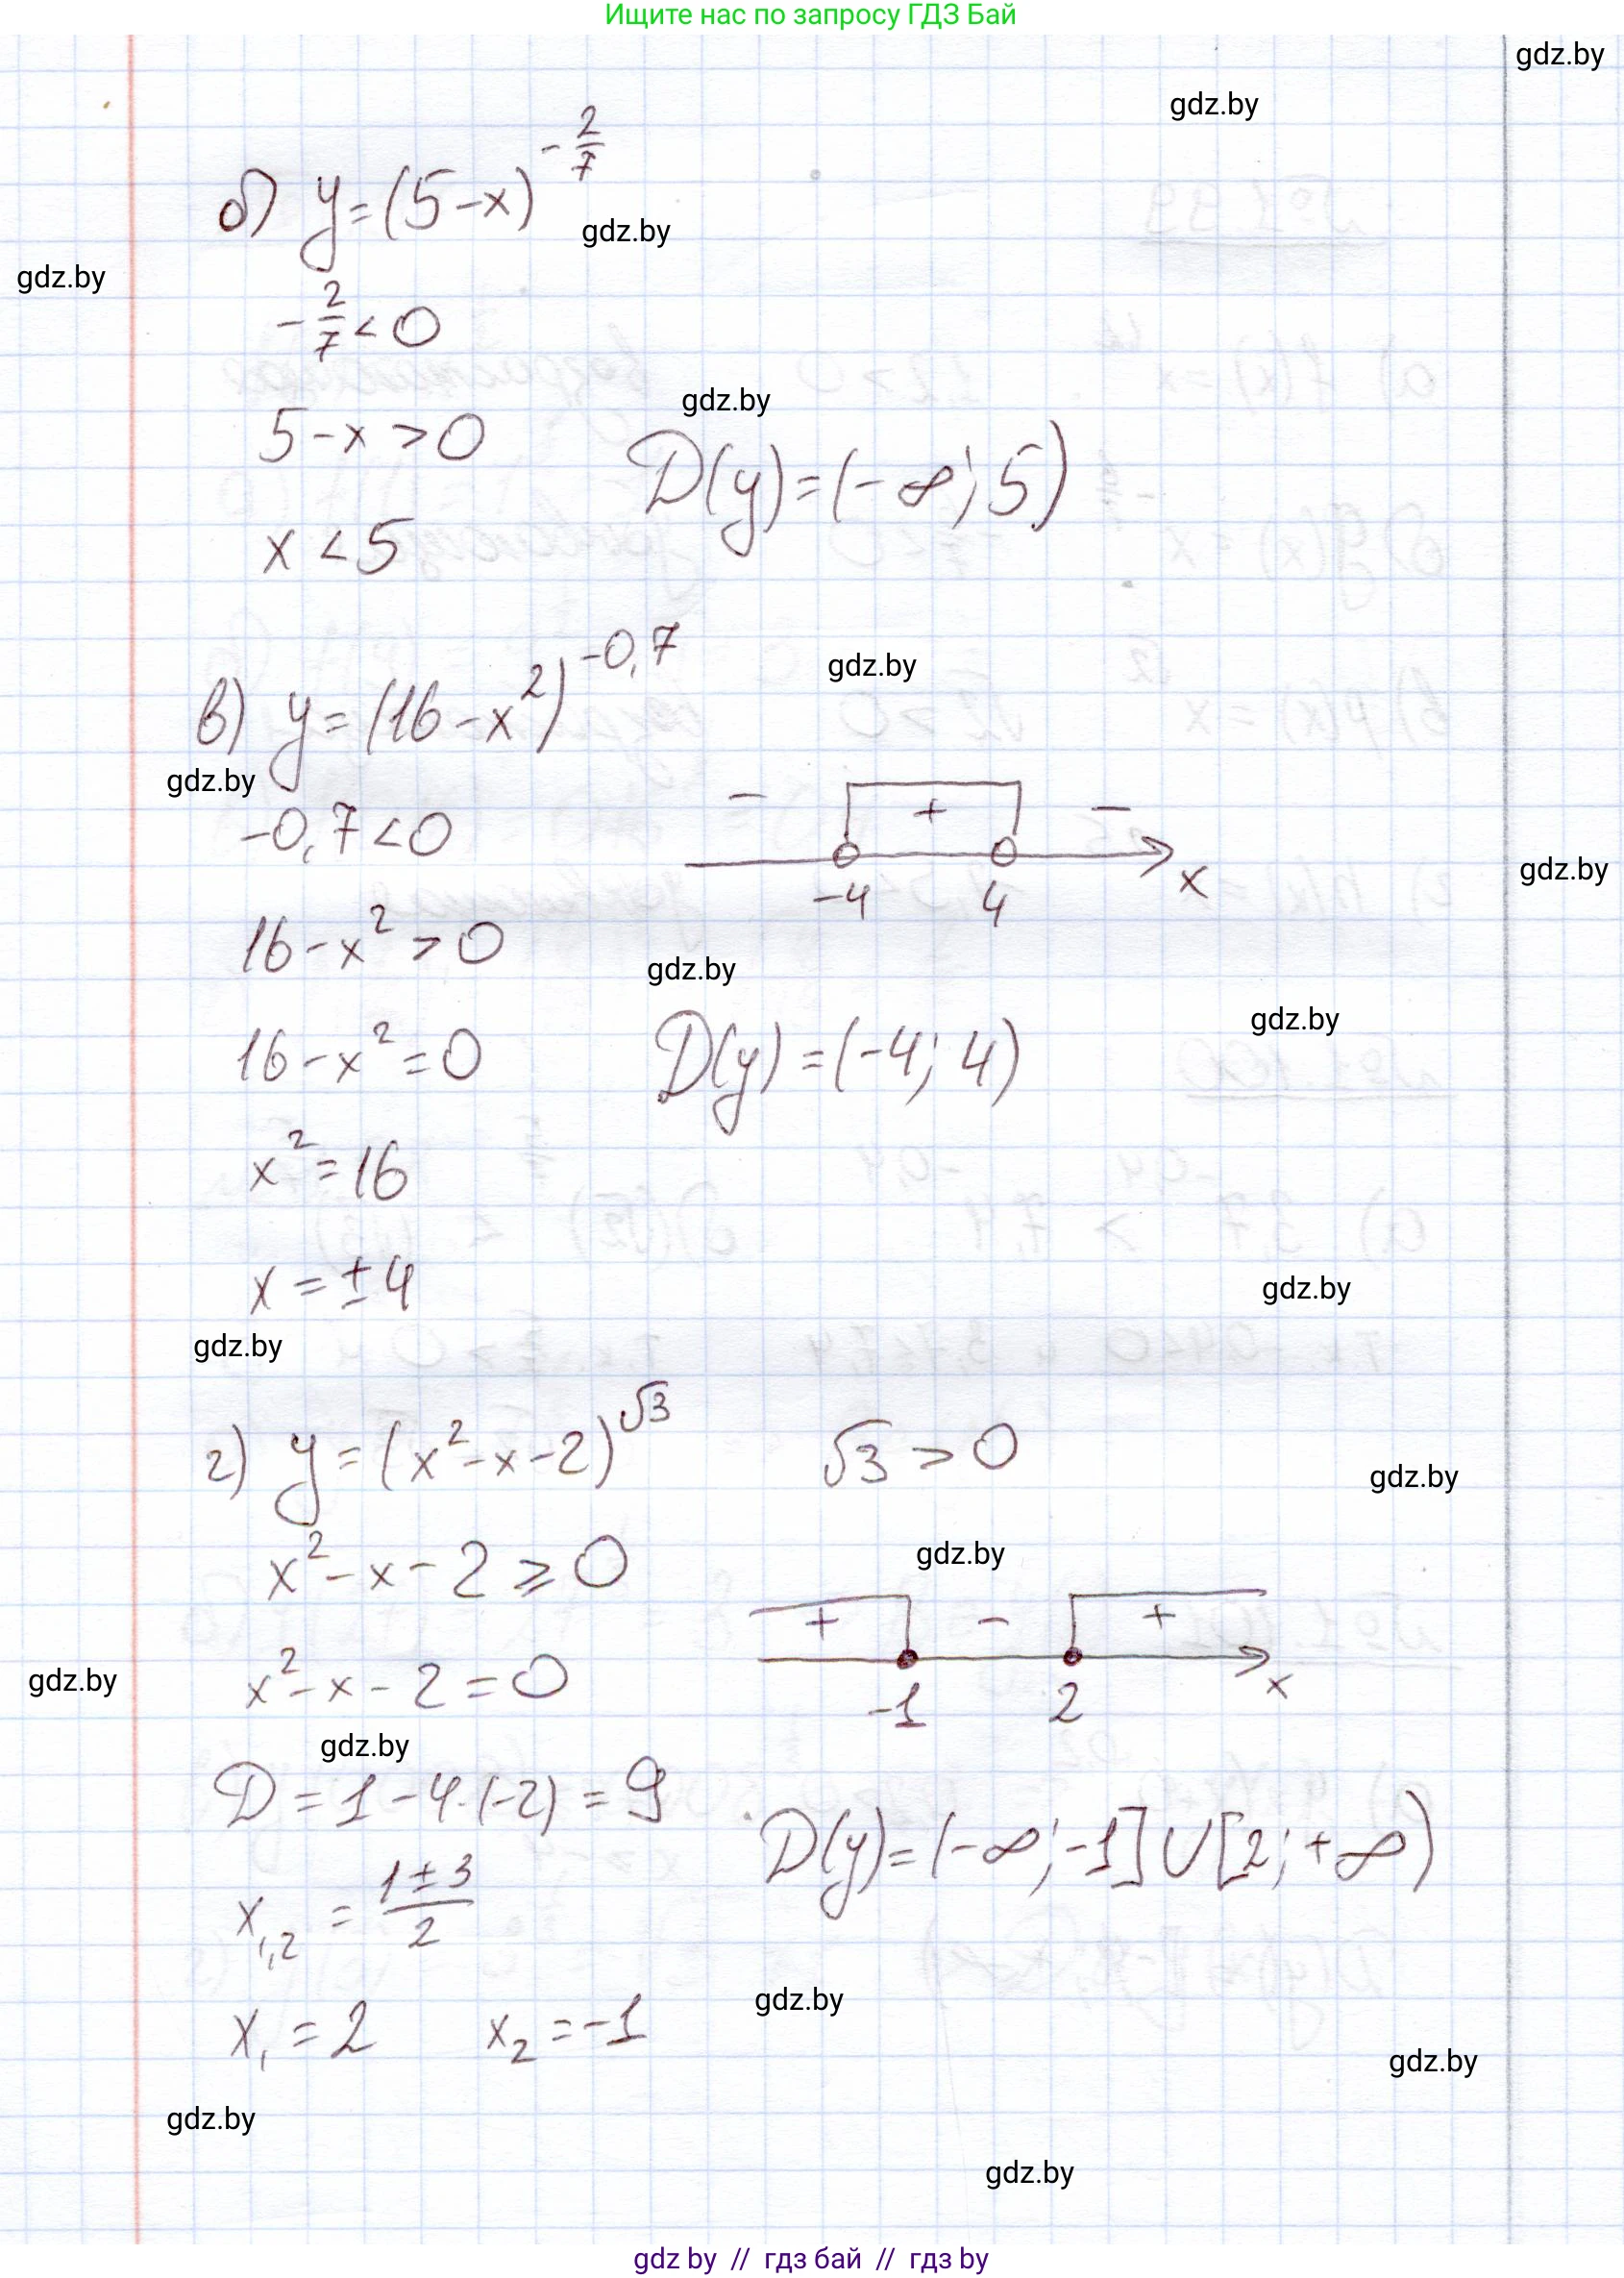 Ищите нас по запросу ГДЗ Бай
gdz.by
gdz.by
б) y = (5 - x)^{-2/7}
gdz.by
gdz.by
-2/7 < 0
gdz.by
5 - x > 0
D(y) = (-∞; 5)
x < 5
в) y = (16 - x²)^{-0,7}
gdz.by
gdz.by
- + -
-0,7 < 0
-4 4 x
gdz.by
16 - x² > 0
gdz.by
gdz.by
16 - x² = 0
D(y) = (-4; 4)
x² = 16
x = ±4
gdz.by
gdz.by
г) y = (x² - x - 2)^{√3} √3 > 0
gdz.by
gdz.by
x² - x - 2 ⩾ 0
+ - +
gdz.by
x² - x - 2 = 0
-1 2 x
gdz.by
D = 1 - 4·(-2) = 9
D(y) = (-∞; -1] ∪ [2; +∞)
x₁,₂ = (1 ± 3)/2
gdz.by
x₁ = 2 x₂ = -1
gdz.by
gdz.by
gdz.by
gdz by // гдз бай // гдз by